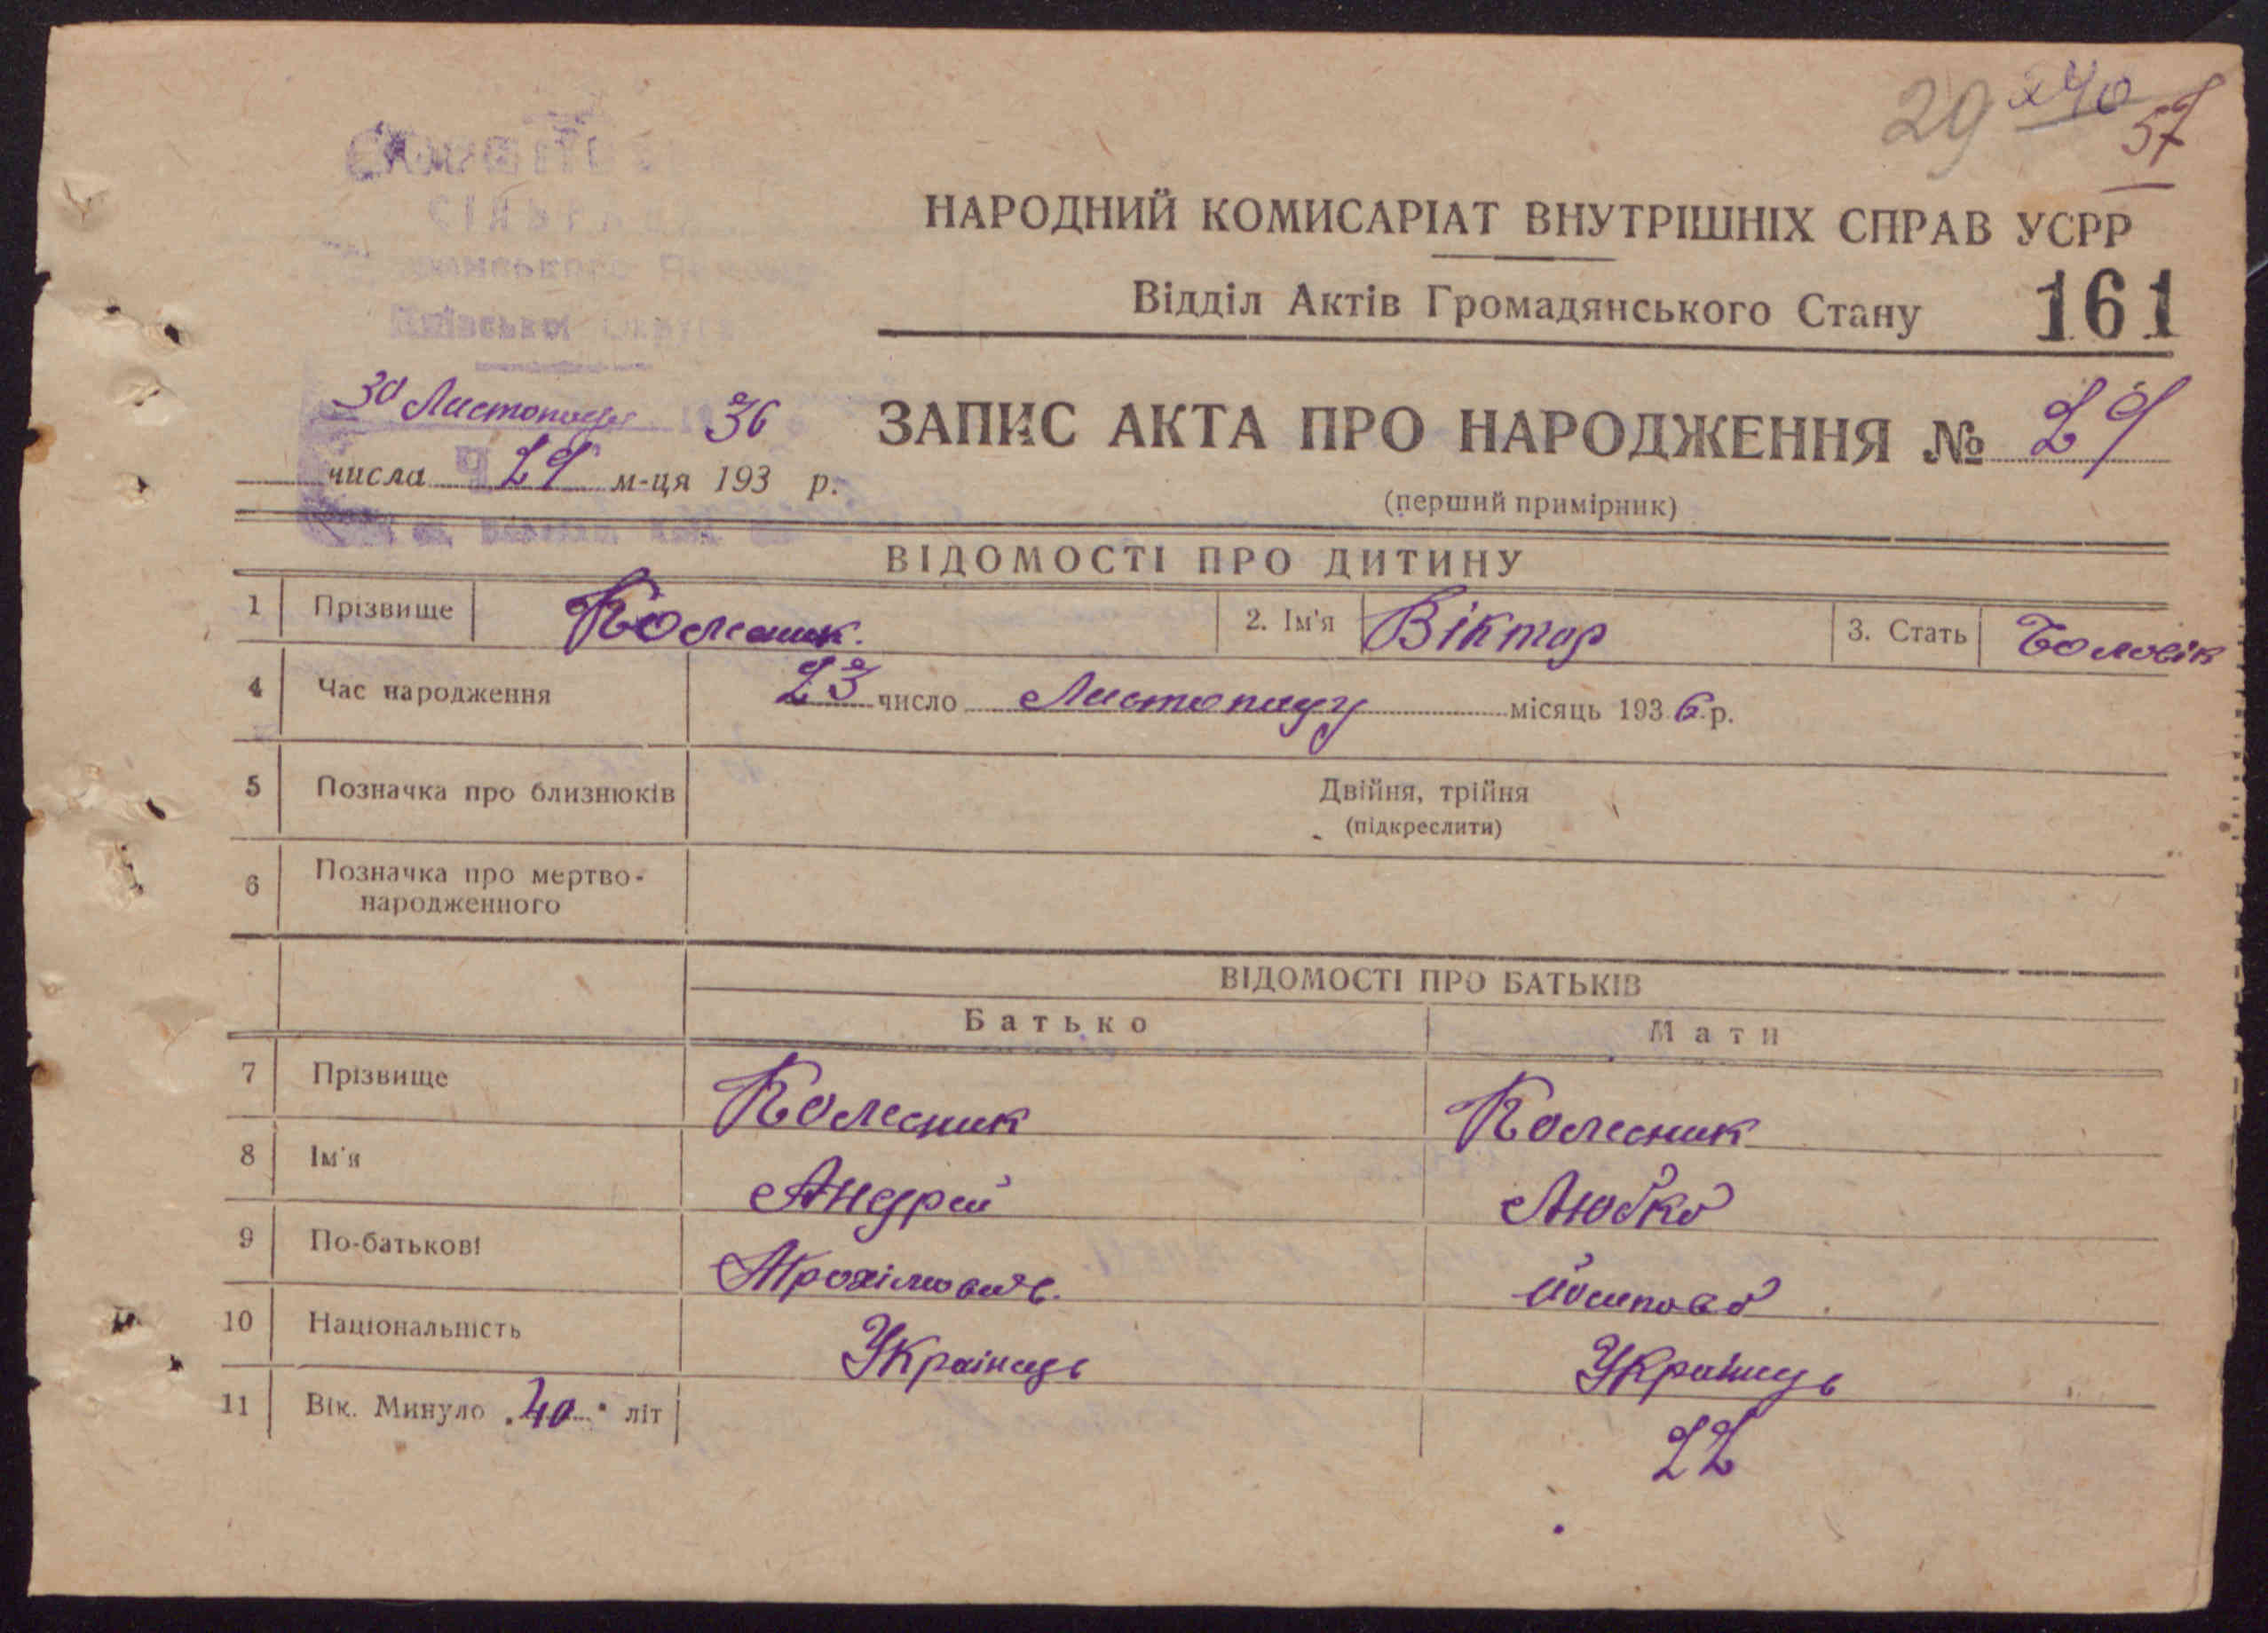 29 40
57
НАРОДНИЙ КОМИСАРІАТ ВНУТРІШНІХ СПРАВ УСРР
Відділ Актів Громадянського Стану 161
30 Листопада 36
числа 29 м-ця 193 р.
ЗАПИС АКТА ПРО НАРОДЖЕННЯ № 29
(перший примірник)
ВІДОМОСТІ ПРО ДИТИНУ
1 Прізвище Колесник. 2. Ім'я Віктор 3. Стать Чоловік
4 Час народження 23 число Листопаду місяць 1936 р.
5 Позначка про близнюків Двійня, трійня
(підкреслити)
6 Позначка про мертво-
народженного
ВІДОМОСТІ ПРО БАТЬКІВ
Батько Мати
7 Прізвище Колесник Колесник
8 Ім'я Андрей Любко
9 По-батькові Йосипово
10 Національність Українець Українець
11 Вік. Минуло „40" літ 22